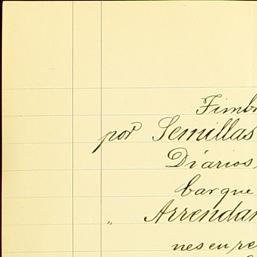 Fimb
por Semillas
Diarios,
barque
" Arrendar
nes en re